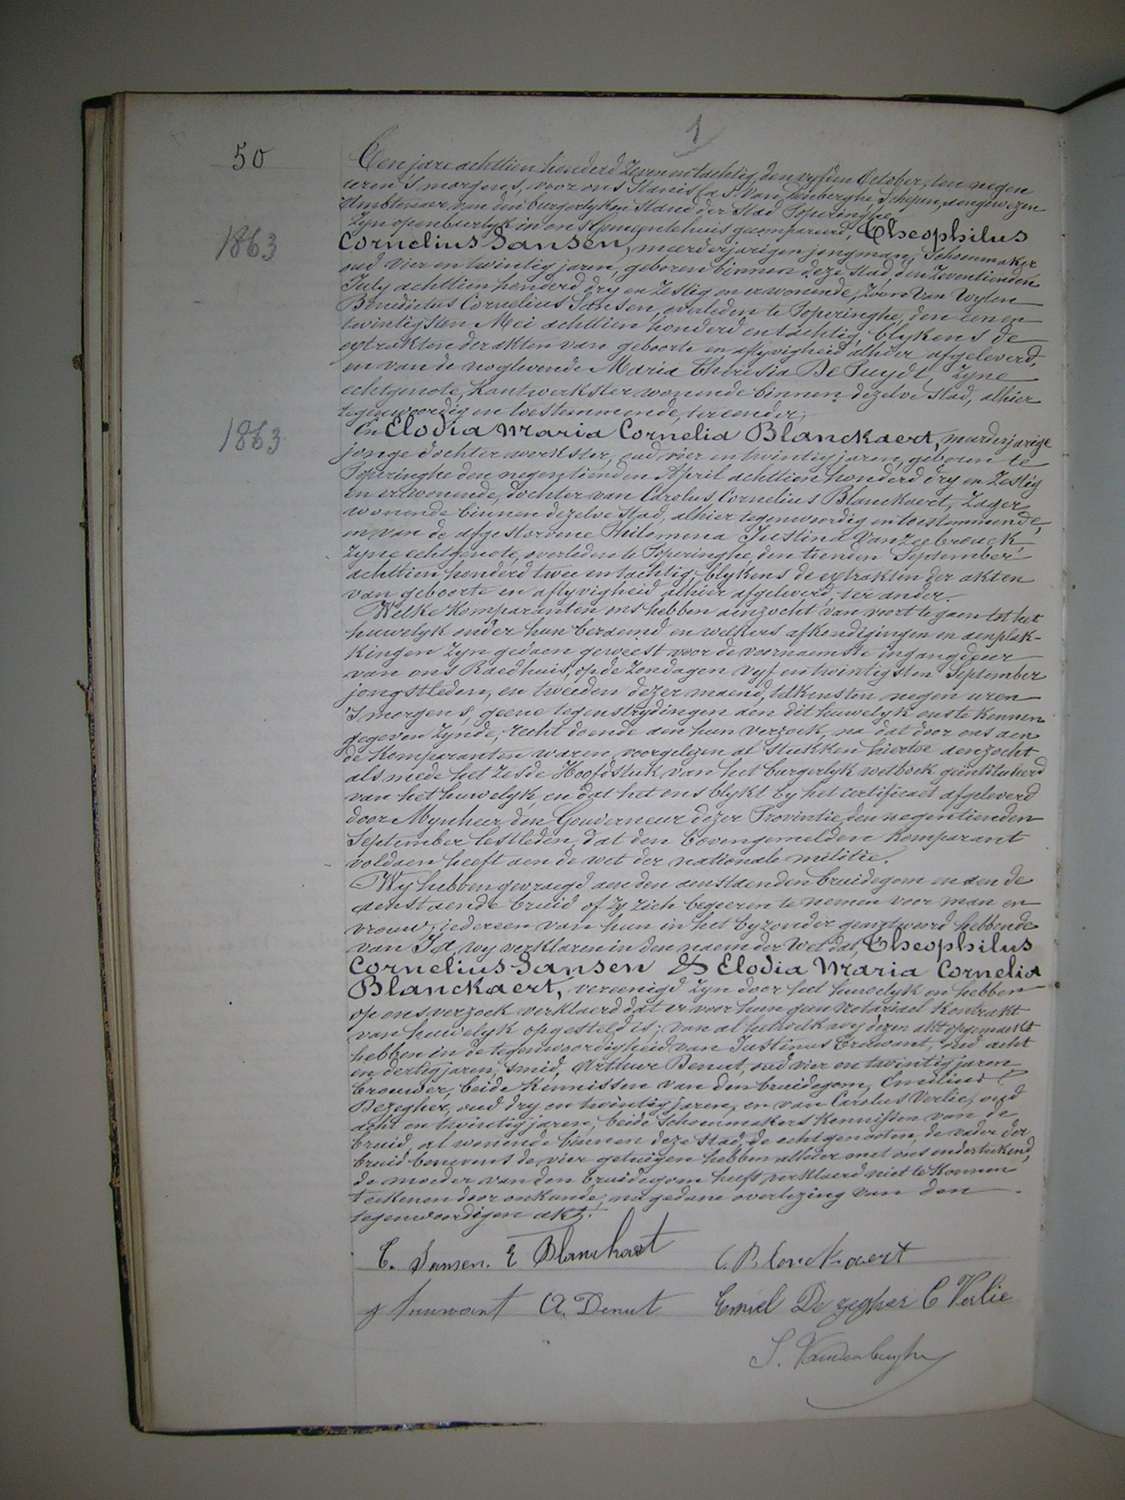 1
50
Ten jare achttien honderd zeven en tachtig, den vyfden October, ten negen
uren 's morgens, voor ons Stanislas Vandenberghe Schepen, aengewezen
Ambtenaer van den burgerlyken Stand der Stad Poperinghe
zyn openbaerlyk in ons Gemeentehuis gecompareerd, Theophilus
1863
Cornelius Sansen, meerderjarigen jongman, Schoenmaker
oud vier en twintig jaren, geboren binnen deze stad, den zeventienden
July achttien honderd dry en zestig en er wonende, zoon van wylen
Benedictus Cornelius Sansen, overleden te Poperinghe, den een en
twintigsten Mei achttien honderd en tachtig, blykens de
extrakten der akten van geboorte en aflyvigheid alhier afgeleverd,
en van de noglevende Maria Theresia De Puydt zyne
echtgenote, kantwerkster wonende binnen dezelve stad, alhier
tegenwoordig en toestemmende, ter eender;
1863
En Elodia Maria Cornelia Blanckaert, meerderjarige
jonge dochter werkster, oud vier en twintig jaren, geboren te
Poperinghe den negentienden April achttien honderd dry en zestig
en er wonende, dochter van Carolus Cornelius Blanckaert, zager
wonende binnen dezelve stad, alhier tegenwoordig en toestemmende,
en van de afgestorvene Philomena Justina Vanzeebrouck
zyne echtgenote, overleden te Poperinghe, den tienden September
achttien honderd twee en tachtig, blykens de extrakten der akten
van geboorte en aflyvigheid alhier afgeleverd, ter ander.
Welke komparanten ons hebben aenzocht van voort te gaen tot het
huwelyk onder hun beraemd en welkers afkondigingen en aenplak-
kingen zyn gedaen geweest voor de voornaemste ingangdeur
van ons Raedhuis, op de Zondagen vyf en twintigsten September
jongstleden, en tweeden dezer maend, telkens ten negen uren
's morgens, geene tegenstrydingen aen dit huwelyk ons te kennen
gegeven zynde, recht doende aen hun verzoek, na dat door ons aen
de komparanten waren voorgelezen al stukken hiertoe aenzocht
als mede het zesde Hoofdstuk van het burgerlyk wetboek geïntituleerd
van het huwelyk, en dat het ons blykt by het certificaet afgeleverd
door Mynheer den Gouverneur dezer Provintie, den negentienden
September lestleden, dat den bovengemelden komparant
voldaen heeft aen de wet der nationale militie.
Wy hebben gevraegd aen den aenstaenden bruidegom en aen de
aenstaende bruid of zy zich begeeren te nemen voor man en
vrouw; iedereen van hun in het byzonder geantwoord hebbende
van Ja, wy verklaren in den naem der Wet dat, Theophilus
Cornelius Sansen & Elodia Maria Cornelia
Blanckaert, vereenigd zyn door het huwelyk en hebben
op ons verzoek verklaerd dat er voor hun geen notariael kontrakt
van huwelyk opgesteld is; van al hetwelk wy dezen akt opgemaekt
hebben in de tegenwoordigheid van Justinus oud acht
en dertig jaren, smid, Arthur Denut, oud vier en twintig jaren
brouwer, beide kennissen van den bruidegom, Emilius
Dezegher, oud dry en twintig jaren, en van Carolus Verlie, oud
acht en twintig jaren, beide Schoenmakers kennissen van de
bruid, al wonende binnen deze stad, de echtgenooten, de vader der
bruid benevens de vier getuigen hebben alhier met ons onderteekend,
de moeder van den bruidegom heeft verklaerd niet te konnen
teekenen door onkunde, na gedane overlezing van den
tegenwoordigen akt.
T. Sansen. E Blanckaert C. Blanckaert
A. Denut Emiel De zegher C Verlie
S. Vandenberghe